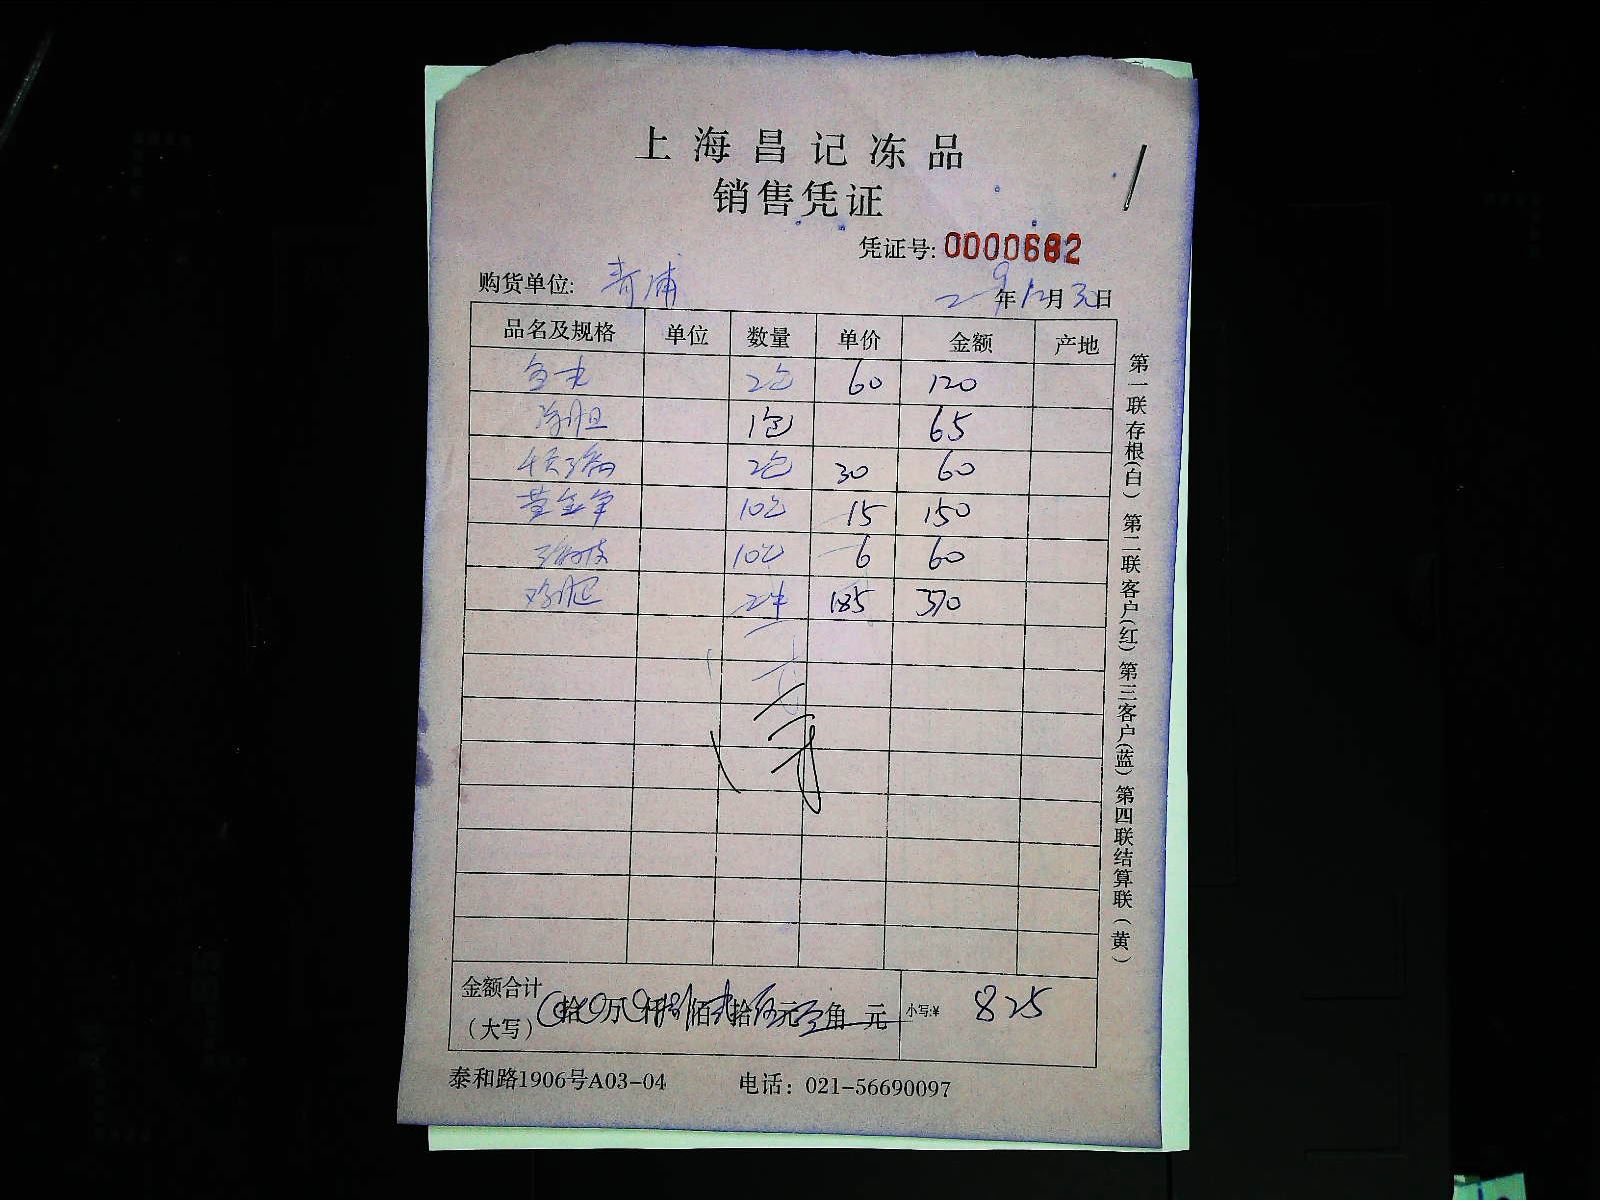 上海昌记冻品
销售凭证
凭证号: 0000682
购货单位: 青浦 年12月30日
品名及规格 单位 数量 单价 金额 产地
2包 60 120
1包 65
2包 30 60
黄金 10包 15 150
10包 6 60
2 185 370
金额合计
(大写) 0拾0万0仟捌佰贰拾伍元 角 元 小写:¥ 825
泰和路1906号A03-04 电话: 021-56690097
第一联存根(白) 第二联客户(红) 第三客户(蓝) 第四联结算联(黄)